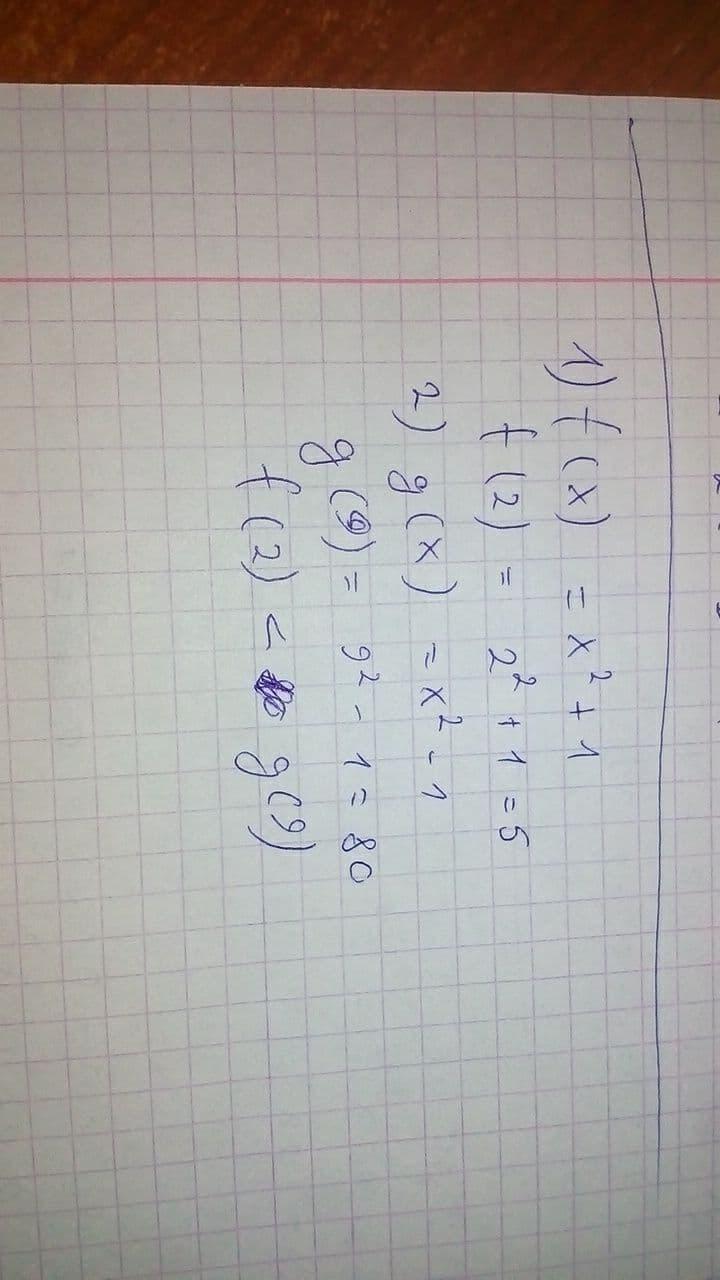 1) f(x) = x² + 1
f(2) = 2² + 1 = 5
2) g(x) = x² - 1
g(9) = 9² - 1 = 80
f(2) < g(9)